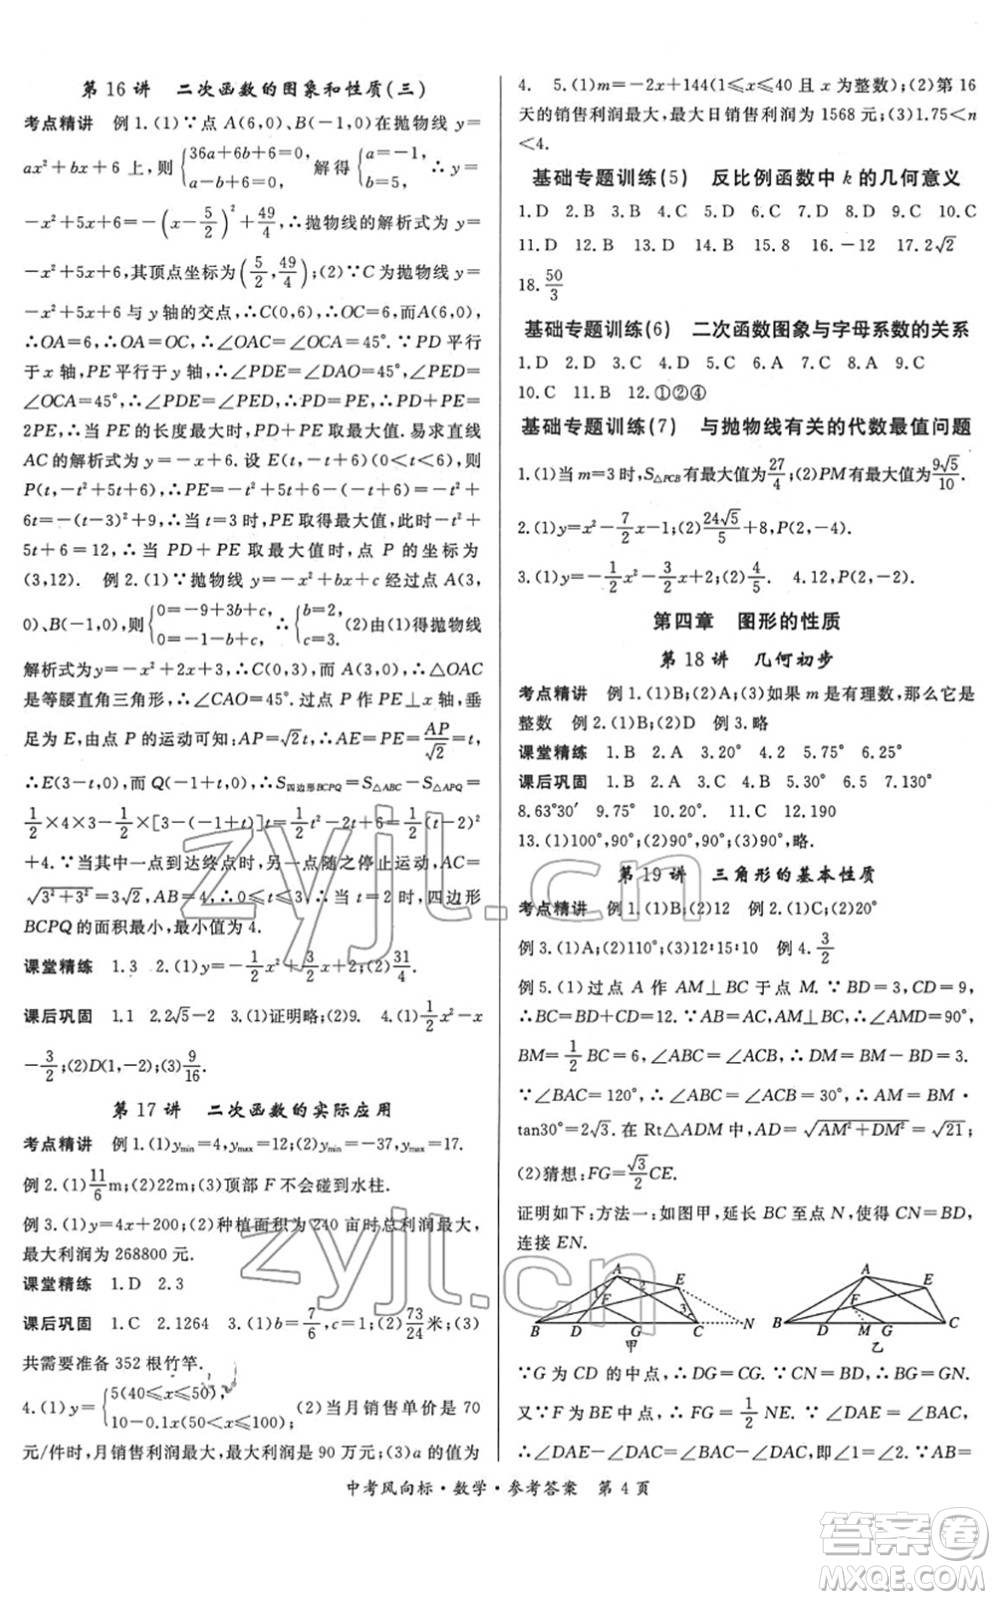 第 16 讲　二次函数的图象和性质(三)
考点精讲　例 1.(1)∵点 A(6,0)、B(-1,0)在抛物线 y=
ax²+bx+6 上，则{36a+6b+6=0, a-b+6=0, 解得{a=-1, b=5, ∴y=
-x²+5x+6=-(x-5/2)²+49/4,∴抛物线的解析式为 y=
-x²+5x+6,其顶点坐标为(5/2,49/4);(2)∵C为抛物线 y=
-x²+5x+6 与 y 轴的交点,∴C(0,6),∴OC=6,而A(6,0),
∴OA=6,∴△OAC 为等腰直角三角形,∴∠OAC=∠OCA=45°.∵PD 平行
于 x 轴,PE平行于 y 轴,∴∠PDE=∠DAO=45°,∠PED=
∠OCA=45°,∴∠PDE=∠PED=45°,∴PD=PE,∴PD+PE=
2PE,∴当 PE 的长度最大时,PD+PE取最大值.易求直线
AC 的解析式为 y=-x+6.设 E(t,-t+6)(0<t<6),则
P(t,-t²+5t+6),∴PE=-t²+5t+6-(-t+6)=-t²+
6t=-(t-3)²+9,∴当 t=3 时,PE 取得最大值,此时-t²+
5t+6=12,∴当 PD+PE 取最大值时,点 P 的坐标为
(3,12).　例 2.(1)∵抛物线 y=-x²+bx+c经过点 A(3,
0)、B(-1,0),则{0=-9+3b+c, 0=-1-b+c, ∴{b=2, c=3. (2)由(1)得抛物线
解析式为 y=-x²+2x+3,∴C(0,3),∴OA=OC,∴△OAC
是等腰直角三角形,∴∠CAO=45°.过点 P 作 PE⊥x 轴,垂
足为 E,由点 P 的运动可知:AP=√2t,∴AE=PE=AP/√2=t,
∴E(3-t,0),而 Q(-1+t,0),∴S四边形BCPQ=S△ABC-S△APQ=
1/2×4×3-1/2×[3-(-1+t)]t=1/2t²-2t+6=1/2(t-2)²
+4.∵当一点到达终点时,另一点随之停止运动,AC=
√3²+3²=3√2,AB=4,∴0≤t≤3,∴当 t=2 时,四边形
BCPQ 的面积最小,最小值为 4.
课堂精练　1.3　2.(1)y=-1/2x²+3/2x+2;(2)31/4.
课后巩固　1.1　2.2√5-2　3.(1)证明略;(2)9.　4.(1)1/2x²-x
-3/2;(2)D(1,-2);(3)9/16.
第 17 讲　二次函数的实际应用
考点精讲　例 1.(1)ymin=4,ymax=12;(2)ymin=-37,ymax=17.
例 2.(1)11/6m;(2)22m;(3)顶部 F 不会碰到水柱.
例 3.(1)y=4x+200;(2)种植面积为 240 亩时总利润最大,
最大利润为 268800 元.
课堂精练　1.D　2.3
课后巩固　1.C　2.1264　3.(1)b=7/6,c=1;(2)73/24米;(3)
共需要准备 352 根竹竿.
4.(1)y={5(40≤x≤50), 10-0.1x(50≤x≤100); (2)当月销售单价是 70
元/件时,月销售利润最大,最大利润是 90 万元;(3)a 的值为
4.　5.(1)m=-2x+144(1≤x≤40 且 x 为整数);(2)第 16
天的销售利润最大,最大日销售利润为 1568 元;(3)1.75<n
<4.
基础专题训练(5)　反比例函数中 k 的几何意义
1.D　2.B　3.B　4.C　5.D　6.D　7.D　8.D　9.C　10.C
11.D　12.B　13.D　14.B　15.8　16.-12　17.2√2
18.50/3
基础专题训练(6)　二次函数图象与字母系数的关系
1.D　2.D　3.D　4.C　5.C　6.A　7.C　8.A　9.C
10.C　11.B　12.①②④
基础专题训练(7)　与抛物线有关的代数最值问题
1.(1)当 m=3 时,S△PCB有最大值为27/4;(2)PM有最大值为9√5/10.
2.(1)y=x²-7/2x-1;(2)24√5/5+8,P(2,-4).
3.(1)y=-1/2x²-3/2x+2;(2)4/5.　4.12,P(2,2).
第四章　图形的性质
第 18 讲　几何初步
考点精讲　例 1.(1)B;(2)A;(3)如果 m 是有理数,那么它是
整数　例 2.(1)B;(2)D　例 3.略
课堂精练　1.B　2.A　3.20°　4.2　5.75°　6.25°
课后巩固　1.D　2.A　3.C　4.B　5.30°　6.5　7.130°
8.63°30′　9.75°　10.20°　11.C　12.190
13.(1)100°,90°;(2)90°,90°;(3)90°,略.
第 19 讲　三角形的基本性质
考点精讲　例 1.(1)B;(2)12　例 2.(1)C;(2)20°
例 3.(1)A;(2)110°;(3)60°;(4)12∶15∶10　例 4.3/2
例 5.(1)过点 A 作 AM⊥BC 于点 M.∵BD=3,CD=9,
∴BC=BD+CD=12.∵AB=AC,AM⊥BC,∴∠AMD=90°,
BM=1/2BC=6,∠ABC=∠ACB,∴DM=BM-BD=3.
∵∠BAC=120°,∴∠ABC=∠ACB=30°,∴AM=BM·
tan30°=2√3.在 Rt△ADM 中,AD=√AM²+DM²=√21;
(2)猜想:FG=√3/2CE.
证明如下:方法一:如图甲,延长 BC至点 N,使得 CN=BD,
连接 EN.
A　E　F　1　2　3　B　D　G　C　N　甲
A　E　F　B　D　M　G　C　乙
∵G 为 CD 的中点,∴DG=CG.∵CN=BD,∴BG=GN.
又∵F为BE 的中点,∴FG=1/2NE.∵∠DAE=∠BAC,
∴∠DAE-∠DAC=∠BAC-∠DAC,即∠BAD=∠CAE.
中考风向标·数学·参考答案　第 4 页
zyjl.cn
zyjl.cn
答案圈
MXQE.COM